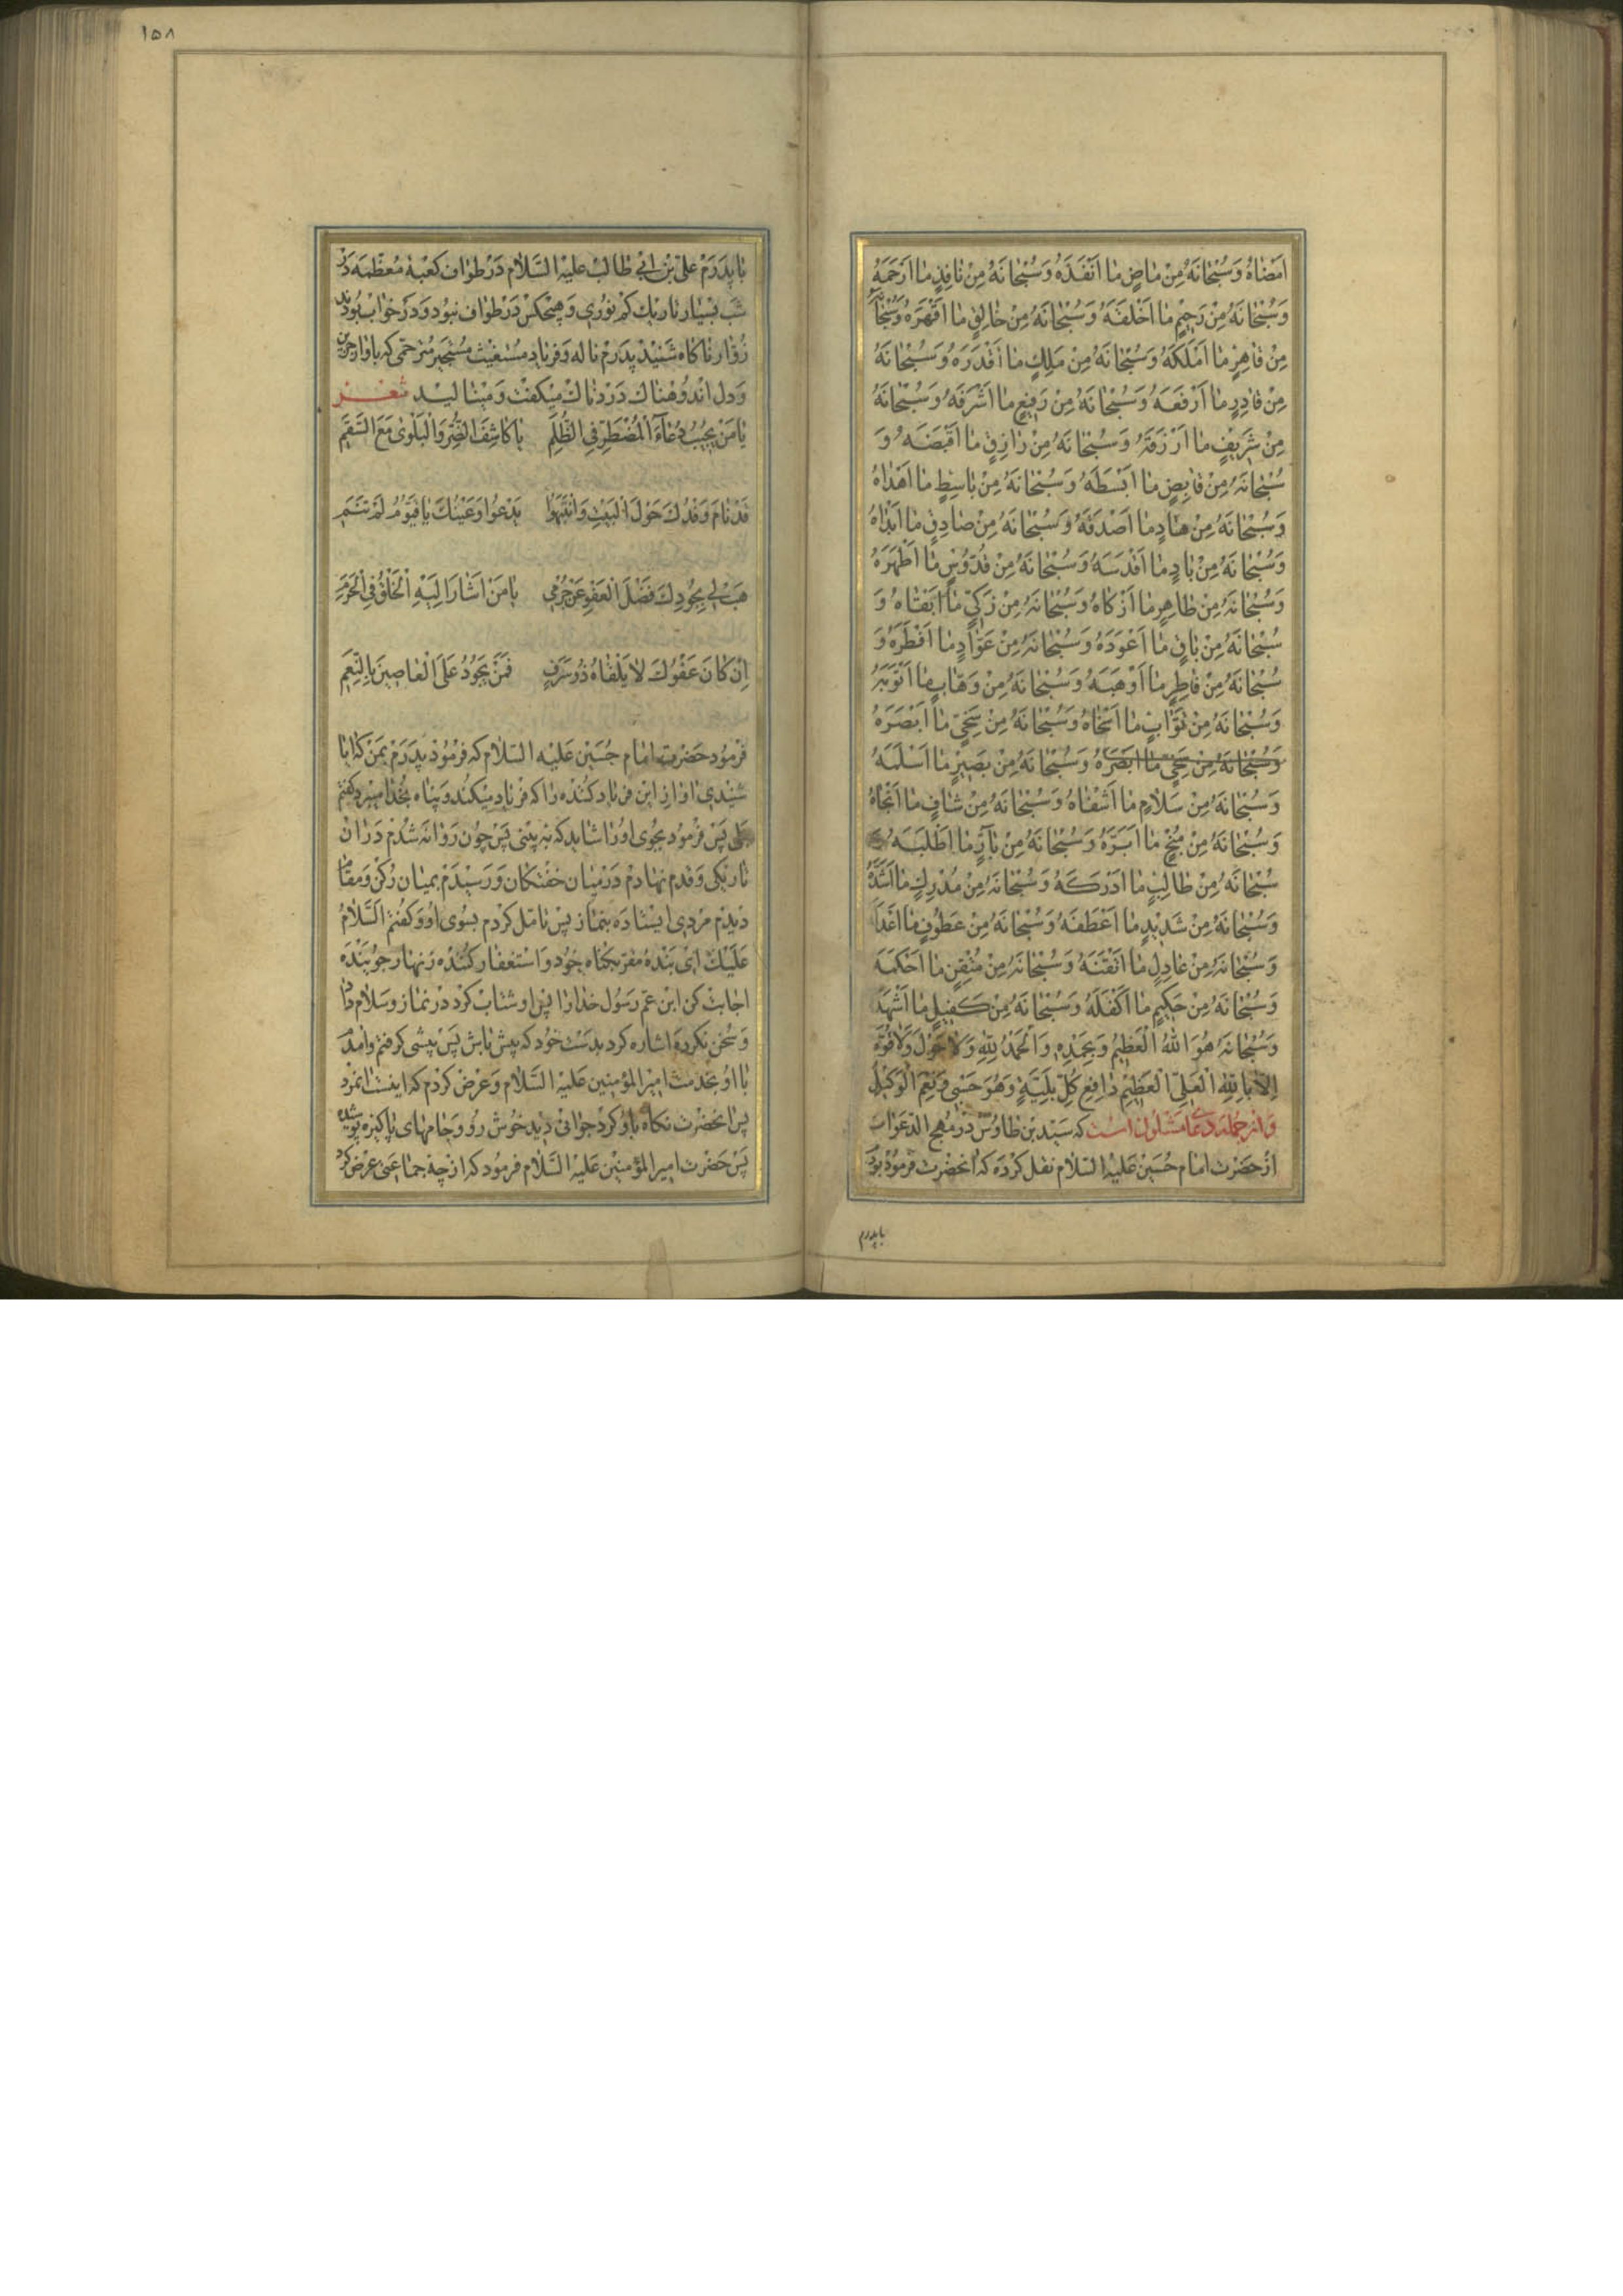 اَمْضٰاهُ وَسُبْحٰانَهُ مِنْ مٰاضٍ مٰا اَنْفَذَهُ وَسُبْحٰانَهُ مِنْ نٰافِذٍ مٰا اَرْحَمَهُ
وَسُبْحٰانَهُ مِنْ رَحِيْمٍ مٰا اَخْلَقَهُ وَسُبْحٰانَهُ مِنْ خٰالِقٍ مٰا اَقْهَرَهُ وَسُبْحٰانَهُ
مِنْ قٰاهِرٍ مٰا اَمْلَكَهُ وَسُبْحٰانَهُ مِنْ مَلِكٍ مٰا اَقْدَرَهُ وَسُبْحٰانَهُ
مِنْ قٰادِرٍ مٰا اَرْفَعَهُ وَسُبْحٰانَهُ مِنْ رَفِيْعٍ مٰا اَشْرَفَهُ وَسُبْحٰانَهُ
مِنْ شَرِيْفٍ مٰا اَرْزَقَهُ وَسُبْحٰانَهُ مِنْ رٰازِقٍ مٰا اَقْبَضَهُ وَ
سُبْحٰانَهُ مِنْ قٰابِضٍ مٰا اَبْسَطَهُ وَسُبْحٰانَهُ مِنْ بٰاسِطٍ مٰا اَهْدٰاهُ
وَسُبْحٰانَهُ مِنْ هٰادٍ مٰا اَصْدَقَهُ وَسُبْحٰانَهُ مِنْ صٰادِقٍ مٰا اَبْدٰاهُ
وَسُبْحٰانَهُ مِنْ بٰادٍ مٰا اَقْدَسَهُ وَسُبْحٰانَهُ مِنْ قُدّوُسٍ مٰا اَطْهَرَهُ
وَسُبْحٰانَهُ مِنْ طٰاهِرٍ مٰا اَزْكٰاهُ وَسُبْحٰانَهُ مِنْ زَكِيٍّ مٰا اَبْقٰاهُ وَ
سُبْحٰانَهُ مِنْ بٰاقٍ مٰا اَعْوَدَهُ وَسُبْحٰانَهُ مِنْ عَوّٰادٍ مٰا اَفْطَرَهُ وَ
سُبْحٰانَهُ مِنْ فٰاطِرٍ مٰا اَوْهَبَهُ وَسُبْحٰانَهُ مِنْ وَهّٰابٍ مٰا اَتْوَبَهُ
وَسُبْحٰانَهُ مِنْ تَوّٰابٍ مٰا اَسْخٰاهُ وَسُبْحٰانَهُ مِنْ سَخِيٍّ مٰا اَبْصَرَهُ
وَسُبْحٰانَهُ مِنْ سَخِيٍّ مٰا اَبْصَرَهُ وَسُبْحٰانَهُ مِنْ بَصِيْرٍ مٰا اَسْلَمَهُ
وَسُبْحٰانَهُ مِنْ سَلٰامٍ مٰا اَشْفٰاهُ وَسُبْحٰانَهُ مِنْ شٰافٍ مٰا اَنْجٰاهُ
وَسُبْحٰانَهُ مِنْ مُنْجٍ مٰا اَبَرَّهُ وَسُبْحٰانَهُ مِنْ بٰارٍّ مٰا اَطْلَبَهُ
سُبْحٰانَهُ مِنْ طٰالِبٍ مٰا اَدْرَكَهُ وَسُبْحٰانَهُ مِنْ مُدْرِكٍ مٰا اَشَدَّهُ
وَسُبْحٰانَهُ مِنْ شَدِيْدٍ مٰا اَعْطَفَهُ وَسُبْحٰانَهُ مِنْ عَطُوفٍ مٰا
وَسُبْحٰانَهُ مِنْ عٰادِلٍ مٰا اَتْقَنَهُ وَسُبْحٰانَهُ مِنْ مُتْقِنٍ مٰا اَحْكَمَهُ
وَسُبْحٰانَهُ مِنْ حَكِيْمٍ مٰا اَكْفَلَهُ وَسُبْحٰانَهُ مِنْ كَفِيْلٍ مٰا اَشْهَدَهُ
وَسُبْحٰانَهُ هُوَ اللّٰهُ الْعَظِيْمُ وَبِحَمْدِهِ وَالْحَمْدُ لِلّٰهِ وَلاٰ حَوْلَ وَلاٰ قُوَّةَ
اِلاّٰ بِاللّٰهِ الْعَلِيِّ الْعَظِيْمِ دٰافِعِ كُلِّ بَلِيَّةٍ وَهُوَ حَسْبِي وَنِعْمَ الْوَكِيْلُ
وَاز جمله دعای مشلول است که سید بن طاوس در مهج الدعوات
از حضرت امام حسین علیه السلام نقل کرده که انحضرت فرمود بود
باپدرم
١٥٨
با پدرم علی بن ابی طالب علیه السلام در طواف کعبه معظمه در
شب بسیار تاریک کم نوری و هیچکس در طواف نبود و در خواب بودند
زوار ناکاه شنید پدرم ناله و فریاد مستغیث مستجیر مترحمی که باواز حزین
و دل اندوهناک دردناک میکفت و مینالید شعر
يٰا مَنْ يُجِيْبُ دُعٰاءَ الْمُضْطَرِّ فِي الظُّلَمِ يٰا كٰاشِفَ الضُّرِّ وَالْبَلْوٰى مَعَ السَّقَمِ
قَدْ نٰامَ وَفْدُكَ حَوْلَ الْبَيْتِ وَانْتَبَهُوا يَدْعُوا وَعَيْنُكَ يٰا قَيُّوْمُ لَمْ تَنَمِ
هَبْ لِي بِجُوْدِكَ فَضْلَ الْعَفْوِ عَنْ جُرْمِي يٰا مَنْ اَشٰارَ اِلَيْهِ الْخَلْقُ فِي الْحَرَمِ
اِنْ كٰانَ عَفْوُكَ لاٰ يَلْقٰاهُ ذُو سَرَفٍ فَمَنْ يَجُوْدُ عَلَى الْعٰاصِيْنَ بِالنِّعَمِ
فرمود حضرت امام حسین علیه السلام که فرمود پدرم بمن که ایا
شنیدی اواز این فریاد کننده را که فریاد میکند و پناه بخدا میبرد کفتم
بلی پس فرمود بجوی او را شاید که به بینی پس چون روانه شدم در ان
تاریکی و قدم نهادم در میان خفتکان و رسیدم بمیان رکن و مقام
دیدم مردی ایستاده بنماز پس تامل کردم بسوی او و کفتم السلام
علیک ای بنده مقر بکناه خود و استغفار کننده زنهار جوینده
اجابت کن ابن عم رسول خدا را پس او شتاب کرد در نماز و سلام داد
و سخن نکرده اشاره کرد بدست خود که پیش باش پس پیشی کرفتم وامدم
با او بخدمت امیر المؤمنین علیه السلام و عرض کردم که اینست انمرد
پس انحضرت نکاه باو کرد جوانی دید خوش رو و جامهای پاکیزه پوشیده
پس حضرت امیر المؤمنین علیه السلام فرمود که از چه جماعتی عرض کرد